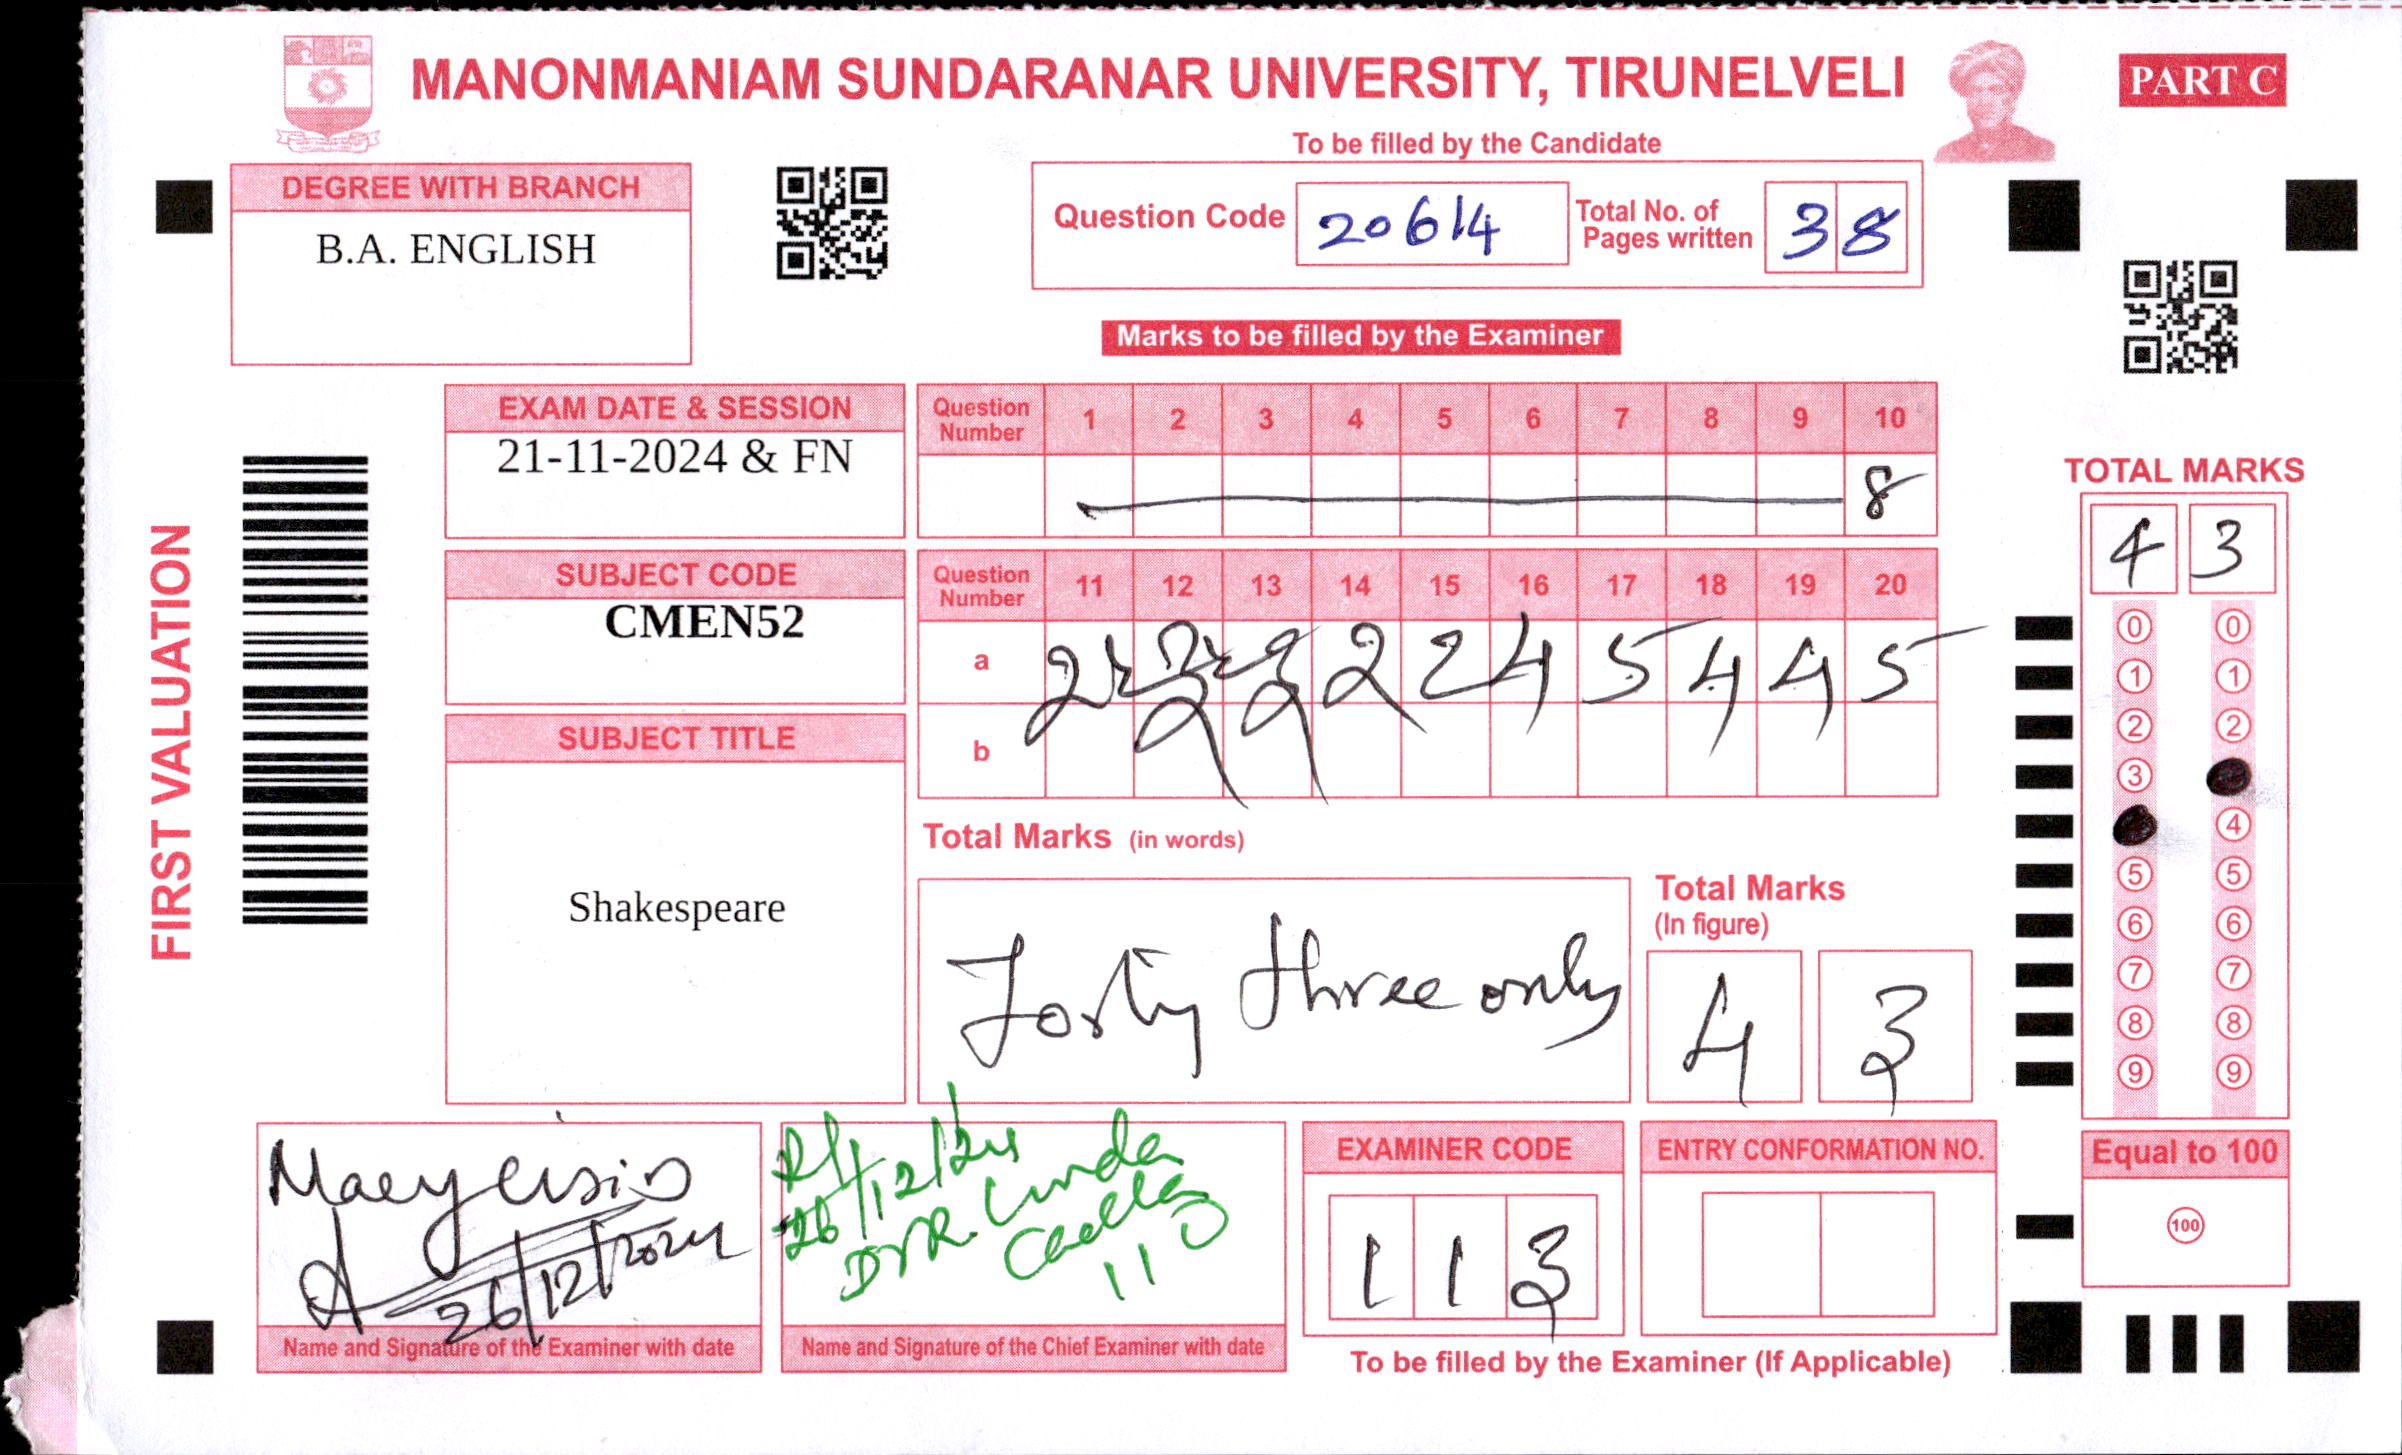 MANONMANIAM SUNDARANAR UNIVERSITY, TIRUNELVELI
PART C
To be filled by the Candidate
DEGREE WITH BRANCH
B.A. ENGLISH
Question Code 20614
Total No. of Pages written 38
Marks to be filled by the Examiner
FIRST VALUATION
EXAM DATE & SESSION
21-11-2024 & FN
SUBJECT CODE
CMEN52
SUBJECT TITLE
Shakespeare
Question Number 1 2 3 4 5 6 7 8 9 10
8
Question Number 11 12 13 14 15 16 17 18 19 20
a 2 2 4 5 4 4 5
b
Total Marks (in words)
Forty three only
Total Marks (In figure)
4 3
TOTAL MARKS
4 3
0 0
1 1
2 2
3
4
5 5
6 6
7 7
8 8
9 9
Equal to 100
100
26/12/2024
Name and Signature of the Examiner with date
26/12/24
Dr R.
110
Name and Signature of the Chief Examiner with date
EXAMINER CODE
1 1 3
ENTRY CONFORMATION NO.
To be filled by the Examiner (If Applicable)